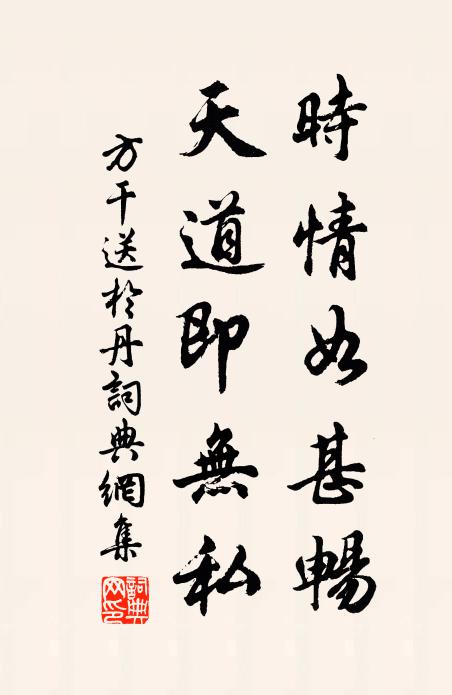 時情如甚暢
天道即無私
方干送於丹詞典網集
詞典
网印